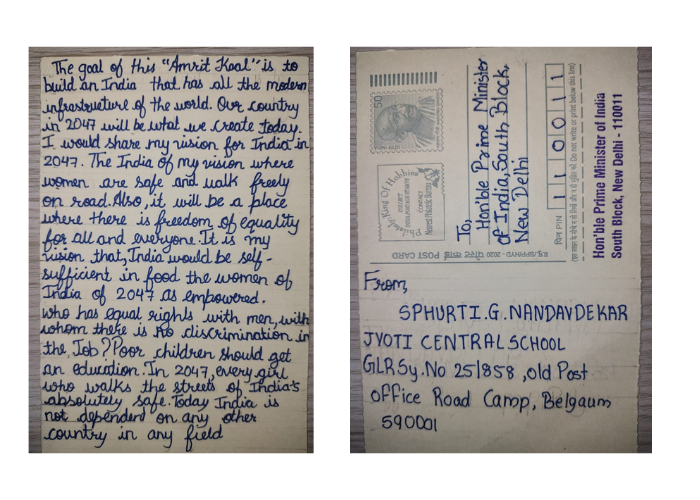 The goal of this "Amrit Kaal" is to
build an India that has all the modern
infrastructure of the world. Our country
in 2047 will be what we create today.
I would share my vision for India in
2047. The India of my vision where
women are safe and walk freely
on road. Also, it will be a place
where there is freedom of equality
for all and everyone. It is my
vision that, India would be self-
sufficient in food the women of
India of 2047 as empowered.
who has equal rights with men, with
whom there is no discrimination in
the Job? Poor children should get
an education. In 2047, every girl
who walks the streets of India's
absolutely safe. Today India is
not dependent on any other
country in any field
50
King Of Hobbies
Nearest Philatelic Bureau
POST CARD
To,
Hon'ble Prime Minister
of India, South Block,
New Delhi
पिन PIN 110011
Hon'ble Prime Minister of India
South Block, New Delhi - 110011
From,
SPHURTI.G.NANDAVDEKAR
JYOTI CENTRAL SCHOOL
GLRSy.No 25/858, old Post
office Road Camp, Belgaum
590001